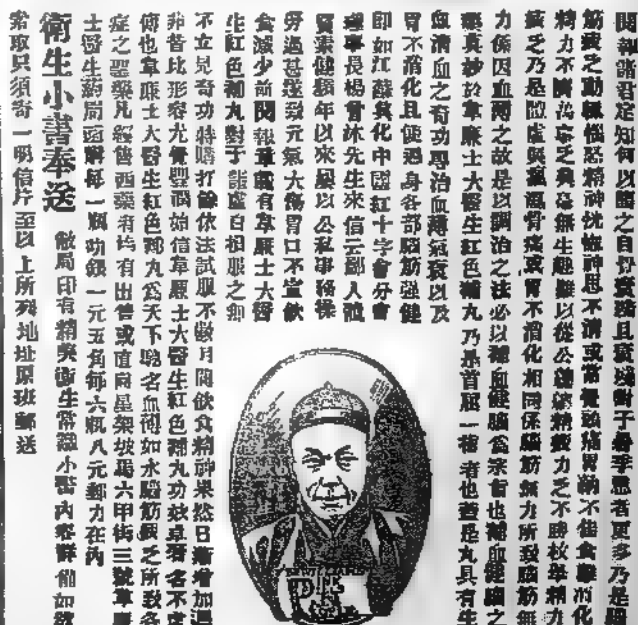 閱報諸君足知何以體之自舒衰弱且衰殘對于春季患者更多乃是腦
筋疲乏動輒惱怒精神恍惚神思不清或常覺頭痛胃納不佳食難消化
精力不濟萬事乏興毫無生趣難以從公總核精疲力乏不勝枚舉精力
疲乏乃是體虛與瘋濕骨痛或胃不消化相同係腦筋無力所致腦筋無
力係因血薄之故是以調治之法必以補血健腦為宗旨也補血健腦之
藥真妙於韋廉士大醫生紅色補丸乃是首屈一指者也蓋是丸具有生
血清血之奇功專治血薄氣衰以及
胃不消化且使遍身各部腦筋強健
即如江蘇興化中國紅十字會分會
理事長楊曾沐先生來信云鄙人體
質素健頻年以來屢以公私事務操
勞過甚遂致元氣大傷胃口不宜飲
食減少前閱報章載有韋廉士大醫
生紅色補丸對于諸虛百損服之卽
不立見奇功特購打餘依法試服不數月間飲食精神果然日漸增加迥
非昔比形容尤覺豐潤始信韋廉士大醫生紅色補丸功效卓著名不虛
傳也韋廉士大醫生紅色補丸為天下馳名血薄如水腦筋衰乏所致各
症之聖藥凡經售西藥者均有出售或直向星架坡碼六甲街三號韋廉
士醫生藥局函購每一瓶功銀一元五角每六瓶八元郵力在內
衛生小書奉送
敝局印有精美衛生常識小書內容詳備如欲
索取只須寄一明信片至以上所列地址原班郵送